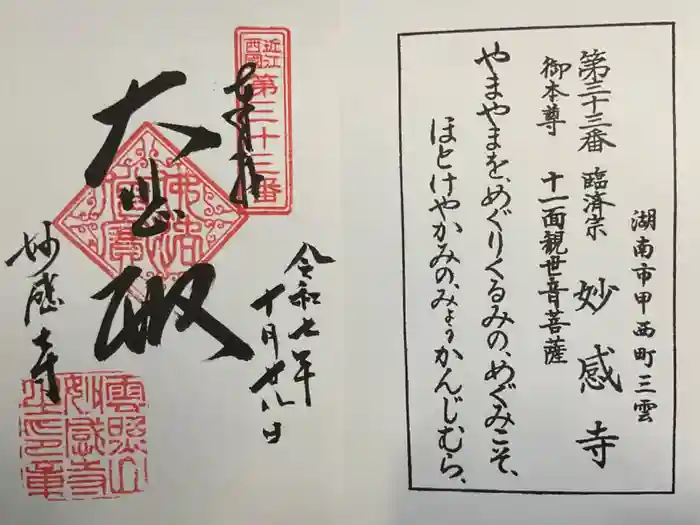 湖南市甲西町三雲
第三十三番 臨済宗 妙感寺
御本尊 十一面観世音菩薩
やまやまを、めぐりくるみの、めぐみこそ、
ほとけやかみの、みょうかんじむら、
近江西国
第三十三番
奉拝
大悲殿
令和七年
十月廿八日
妙感寺
雲照山
妙感寺